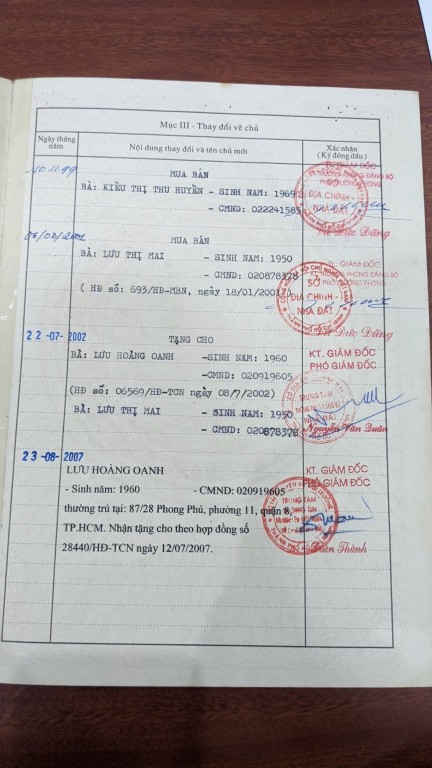 Mục III - Thay đổi về chủ
Ngày tháng năm
Nội dung thay đổi và tên chủ mới
Xác nhận
( Ký đóng dấu )
10.11.99
MUA BÁN
BÀ: KIỀU THỊ THU HUYỀN - SINH NĂM: 1969
- CMND: 022241585
SỞ
ĐỊA CHÍNH -
NHÀ ĐẤT
Đức Dũng
MUA BÁN
BÀ: LƯU THỊ MAI - SINH NĂM: 1950
- CMND: 020878378
( HĐ số: 693/HĐ-MBN, ngày 18/01/2001
TL. GIÁM ĐỐC
SỞ
ĐỊA CHÍNH -
NHÀ ĐẤT
Đức Dũng
22-07-2002
TẶNG CHO
BÀ: LƯU HOÀNG OANH -SINH NĂM: 1960
-CMND: 020919605
(HĐ số: 06569/HĐ-TCN ngày 08/7/2002)
BÀ: LƯU THỊ MAI - SINH NĂM: 1950
- CMND: 020878378
KT. GIÁM ĐỐC
PHÓ GIÁM ĐỐC
TRUNG TÂM
NHÀ ĐẤT
Nguyễn Văn Quân
23-08-2007
LƯU HOÀNG OANH
- Sinh năm: 1960 - CMND: 020919605
thường trú tại: 87/28 Phong Phú, phường 11, quận 8,
TP.HCM. Nhận tặng cho theo hợp đồng số
28440/HĐ-TCN ngày 12/07/2007.
KT. GIÁM ĐỐC
PHÓ GIÁM ĐỐC
TRUNG TÂM
Thành